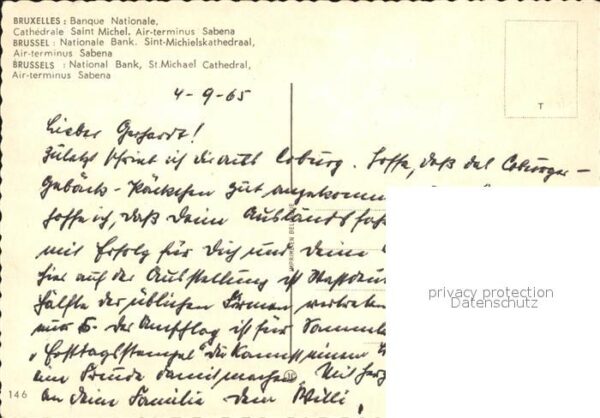 BRUXELLES : Banque Nationale,
Cathédrale Saint Michel. Air-terminus Sabena
BRUSSEL : Nationale Bank. Sint-Michielskathedraal,
Air-terminus Sabena
BRUSSELS : National Bank, St. Michael Cathedral,
Air-terminus Sabena
T
4-9-65
Lieber Gerhardt!
Zuletzt schrieb ich dir aus Coburg. Hoffe, daß das Coburger-
Gebäck-Päckchen gut angekommen
hoffe ich, daß deine Auslandsfah
mit Erfolg für Dich und deine
hier auf der Ausstellung ist
Hälfte der üblichen Firmen vertreten
nur 5.- der Aufschlag ist für Sammle
"Ersttagstempel" Du kannst einem
eine Freude damit machen. Mit herz
an deine Familie dein Willi,
IMPRIMERIE BELGE
privacy protection
Datenschutz
146